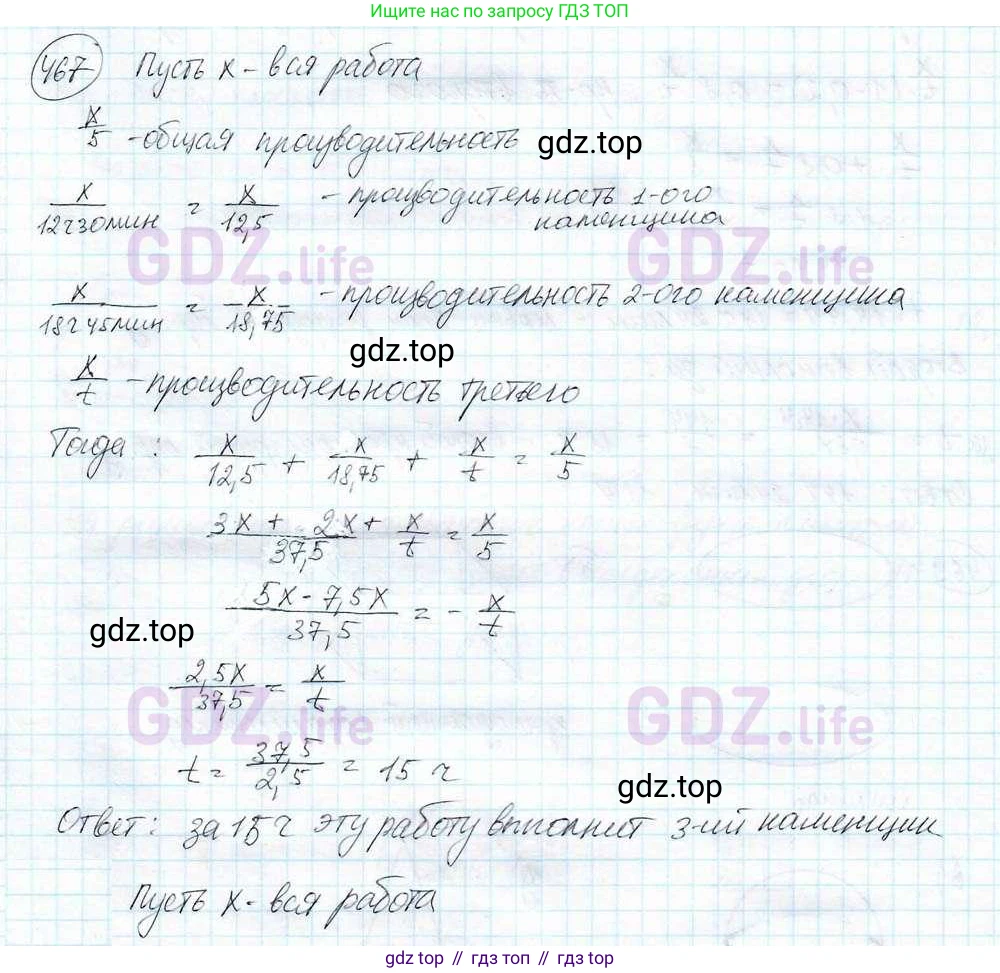 Ищите нас по запросу ГДЗ ТОП
467 Пусть x - вся работа
x/5 - общая производительность
gdz.top
x/12ч30мин = x/12,5 - производительность 1-ого каменщика
GDZ.life GDZ.life
x/18ч45мин = x/18,75 - производительность 2-ого каменщика
gdz.top
x/t - производительность третьего
Тогда: x/12,5 + x/18,75 + x/t = x/5
3x + 2x/37,5 + x/t = x/5
5x - 7,5x/37,5 = - x/t
gdz.top
2,5x/37,5 = x/t
GDZ.life GDZ.life
t = 37,5/2,5 = 15 ч
gdz.top
Ответ: за 15 ч эту работу выполнит 3-ий каменщик
Пусть x - вся работа
gdz.top // гдз топ // гдз.топ